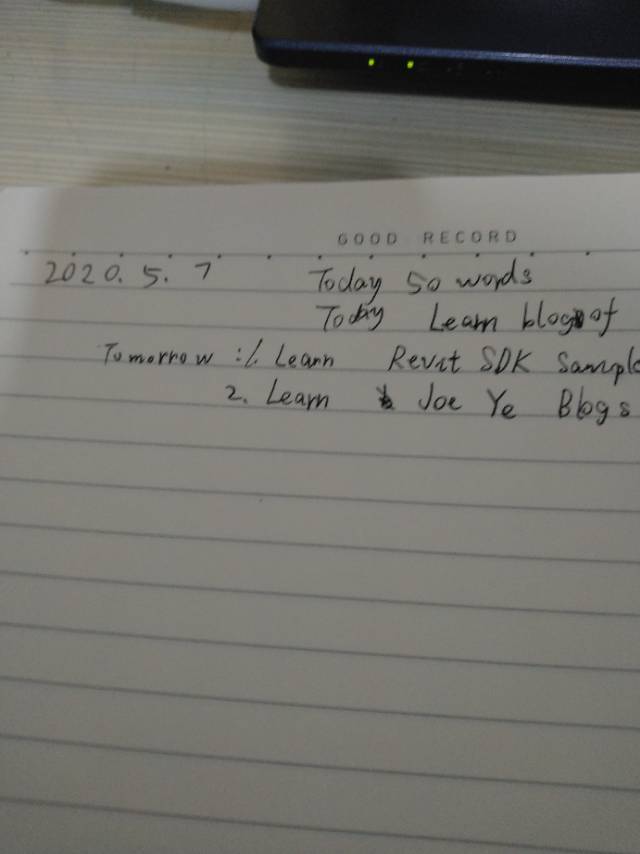 GOOD RECORD
2020.5.7 Today 50 words
Today Learn blog of
Tomorrow: 1. Learn Revit SDK Sample
2. Learn Joe Ye Blogs